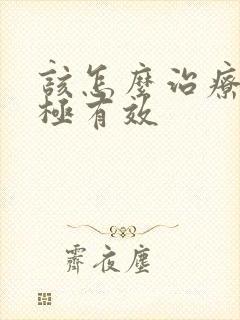 該怎麼治療
極有效
霽夜塵